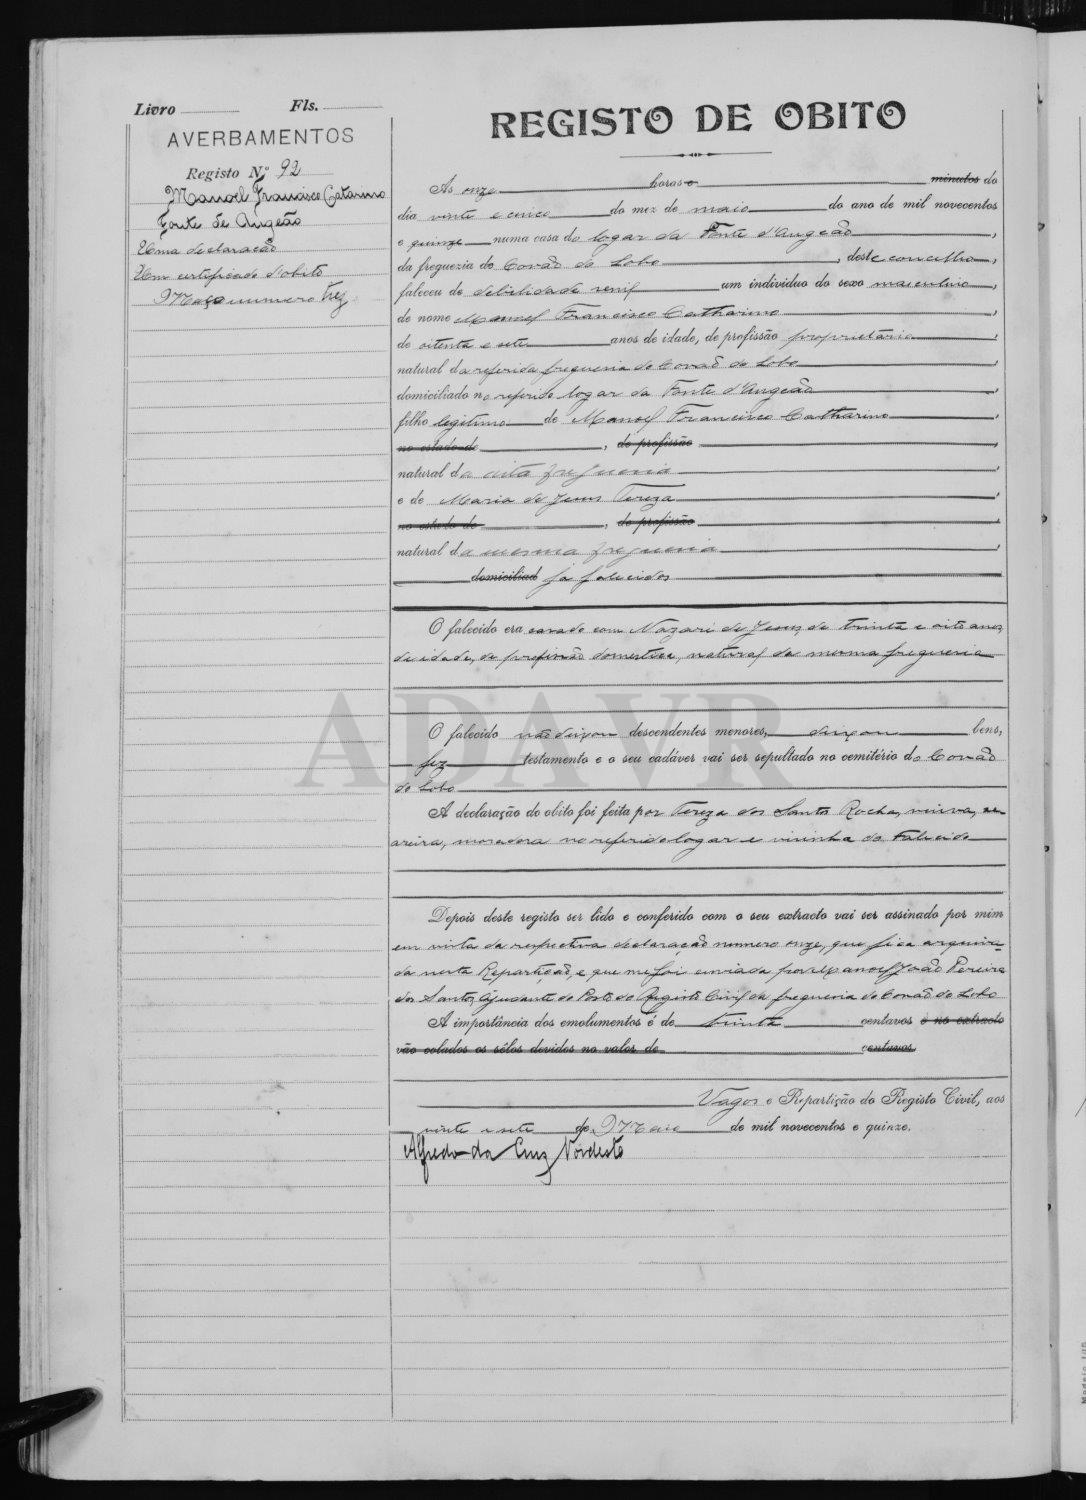 Livro Fls.
AVERBAMENTOS
Registo Nº 92
Manoel Francisco Catarino
Fonte de Angeão
Uma declaração
Um certificado d'obito
Maço numero trez
REGISTO DE OBITO
Ás onze horas e minutos do
dia vinte e cinco do mez de maio do ano de mil novecentos
e quinze numa casa do logar da Fonte d'Angeão,
da freguezia de Covão do Lobo, deste concelho,
faleceu de debilidade senil um individuo do sexo masculino,
de nome Manoel Francisco Catharino,
de oitenta e sete anos de idade, de profissão proprietário,
natural da referida freguesia de Covão do Lobo
domiciliado no referido logar da Fonte d'Angeão,
filho legitimo de Manoel Francisco Catharino,
no estado de , de profissão ,
natural da dita freguesia,
e de Maria de Jesus Tereza,
no estado de , de profissão ,
natural da mesma freguesia,
domiciliad já falecidos
O falecido era casado com Nazaré de Jesus, de trinta e oito anos,
de idade, de profissão domestica, natural da mesma freguesia
ADAVR
O falecido não deixou descendentes menores, deixou bens,
fez testamento e o seu cadáver vai ser sepultado no cemitério do Covão
do Lobo
A declaração do obito foi feita por Tereza dos Santos Rocha, viuva,
moradora no referido logar e visinha do falecido
Depois deste registo ser lido e conferido com o seu extracto vai ser assinado por mim
em vista da respectiva declaração numero onze, que fica arquiva-
da nesta Repartição, e que me foi enviada por Manoel João Pereira
dos Santos, Ajudante do Posto do Registo Civil da freguesia do Covão do Lobo
A importância dos emolumentos é de trinta centavos e no extracto
vão colados os sêlos devidos no valor de centavos
Vagos e Repartição do Registo Civil, aos
vinte e sete de Maio de mil novecentos e quinze.
Alfredo da Cruz Nordeste